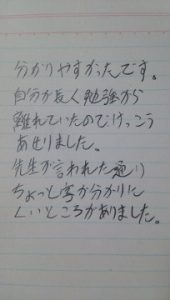 分かりやすかったです。
自分が長く勉強から
離れていたのでけっこう
あせりました。
先生が言われた通り
ちょっと字が分かりに
くいところがありました。